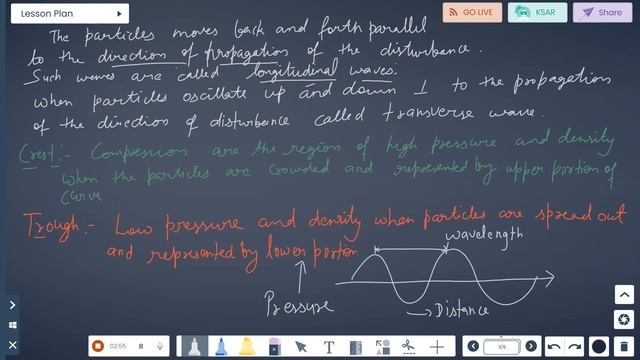 Lesson Plan
GO LIVE
KSAR
Share
The particles moves back and forth parallel
to the direction of propagation of the disturbance.
Such waves are called longitudinal waves.
when particles oscillate up and down ⊥ to the propagation
of the direction of disturbance called transverse wave.
Crest:- Compression are the region of high pressure and density
when the particles are crowded and represented by upper portion of
curve
Trough:- Low pressure and density when particles are spread out
and represented by lower portion
wavelength
Pressure
→ Distance
02:55
T